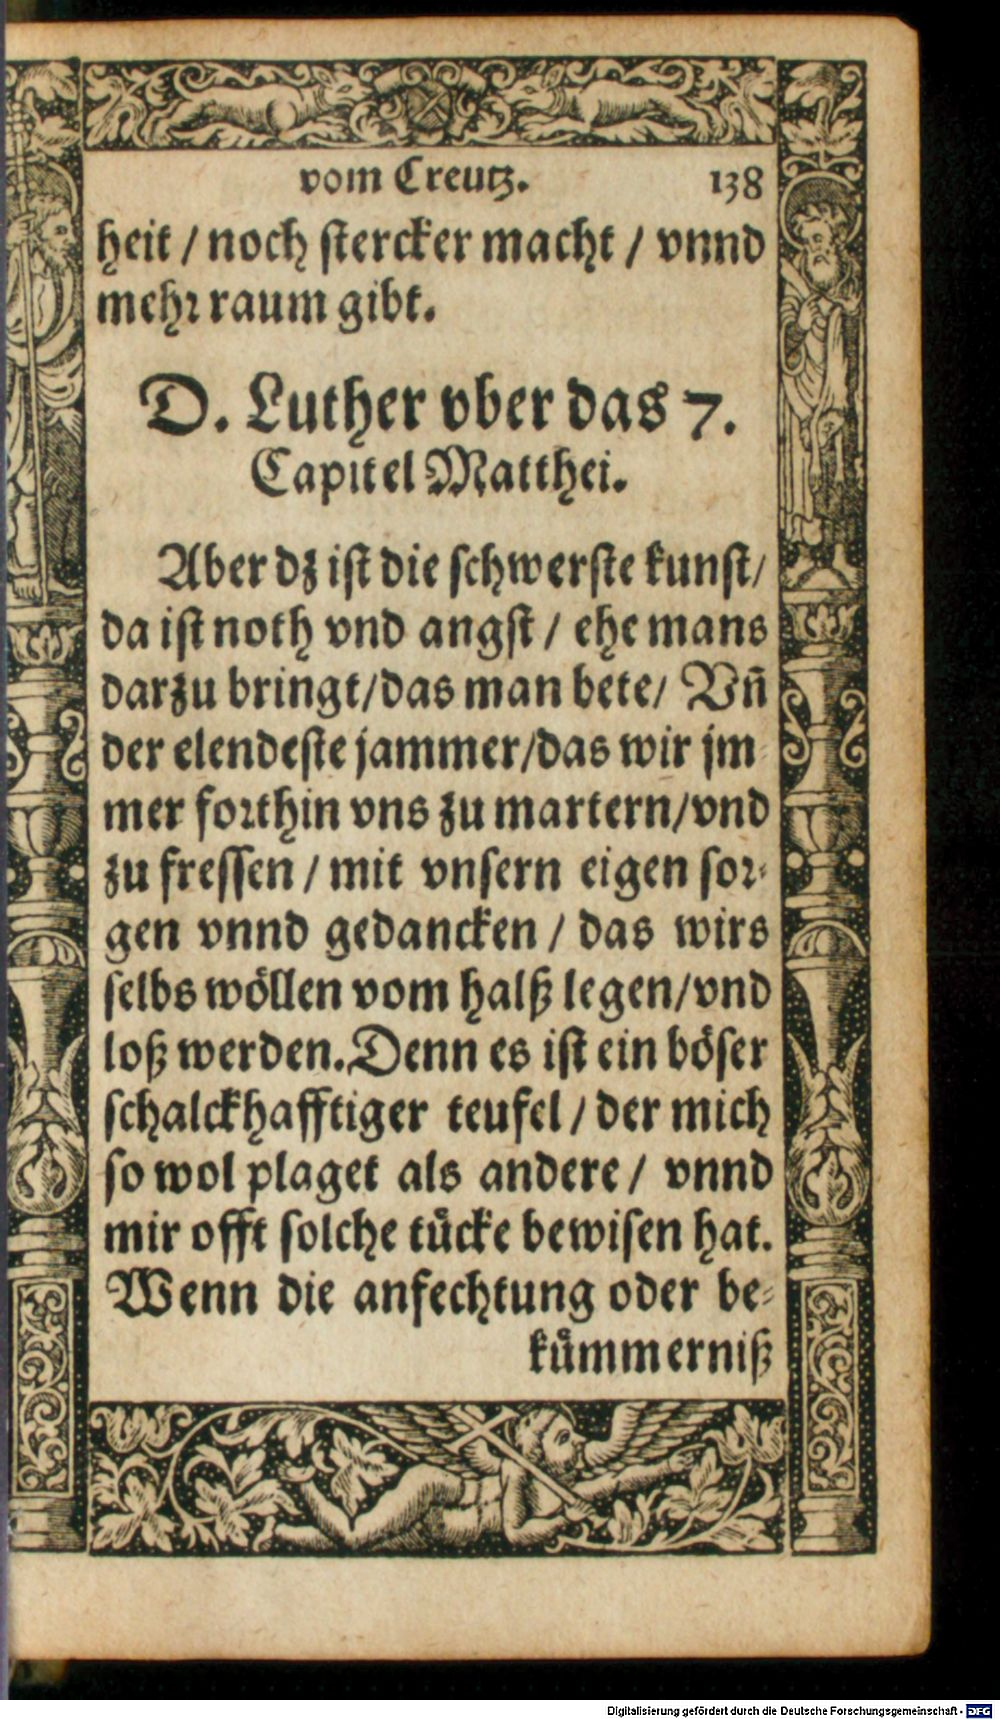 vom Creutz. 138
heit / noch stercker macht / vnnd
mehr raum gibt.
D. Luther vber das 7.
Capitel Matthei.
Aber dz ist die schwerste kunst/
da ist noth vnd angst / ehe mans
darzu bringt/das man bete/ Vn̄
der elendeste jammer/das wir jm-
mer forthin vns zu martern/vnd
zu fressen / mit vnsern eigen sor-
gen vnnd gedancken / das wirs
selbs wöllen vom halß legen/vnd
loß werden. Denn es ist ein böser
schalckhafftiger teufel / der mich
so wol plaget als andere / vnnd
mir offt solche tuͤcke bewisen hat.
Wenn die anfechtung oder be-
kuͤmmerniß
Digitalisierung gefördert durch die Deutsche Forschungsgemeinschaft - DFG